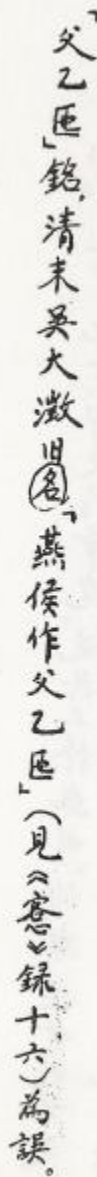 「父乙匜」銘，清末吳大澂旧名「燕侯作父乙匜」（見《愙》録十六）為誤。